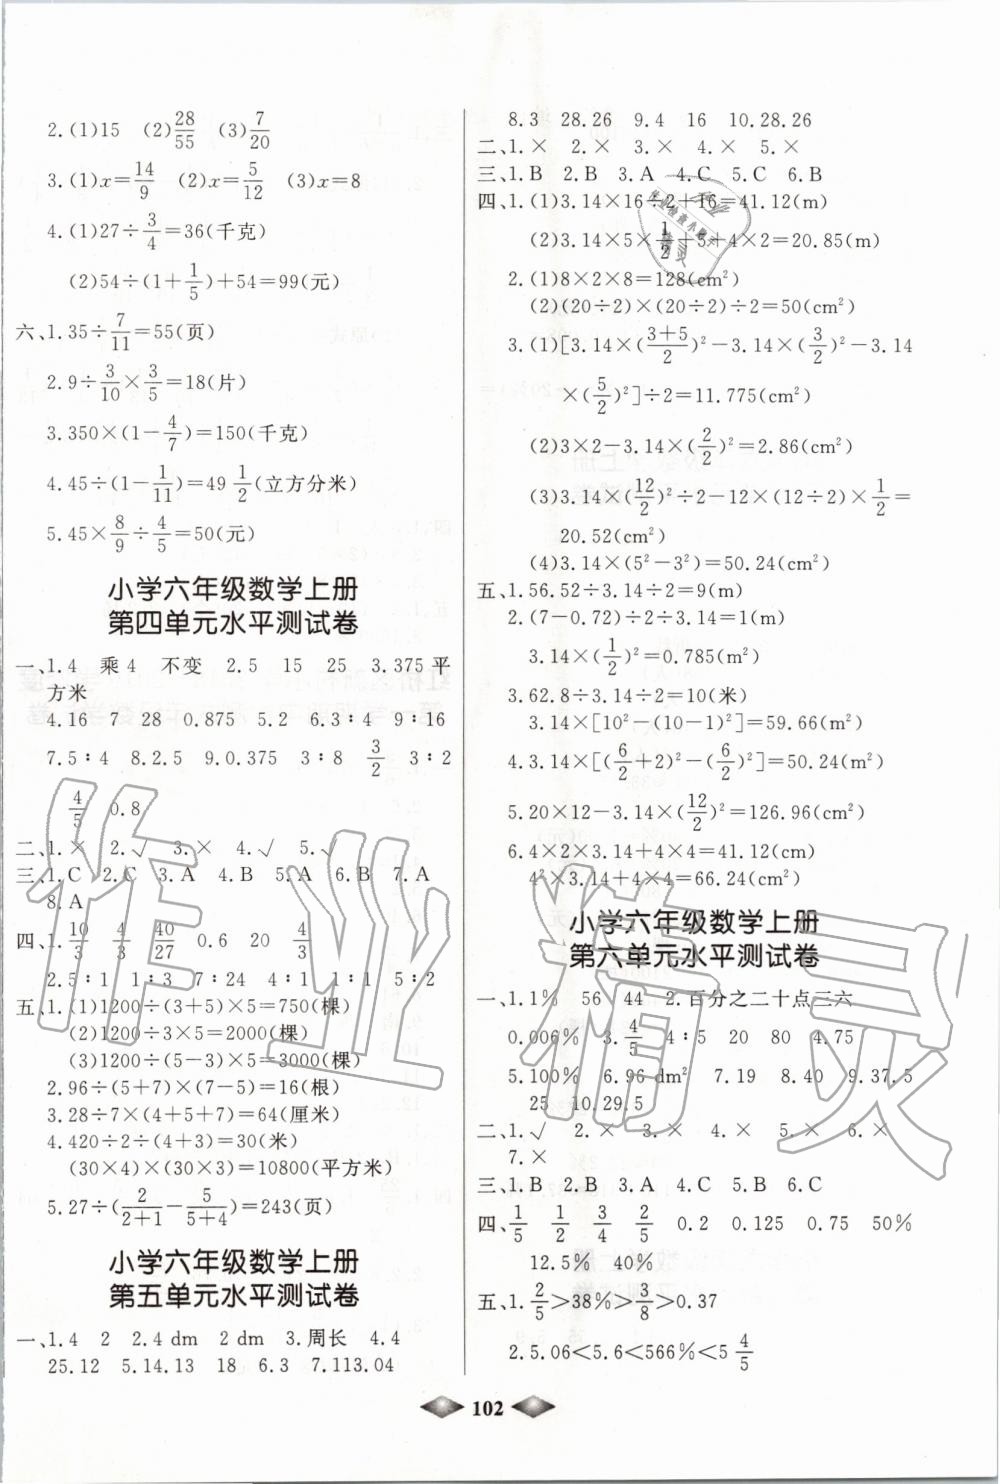 2.(1)15 (2)28/55 (3)7/20
3.(1)x=14/9 (2)x=5/12 (3)x=8
4.(1)27÷3/4=36(千克)
(2)54÷(1+1/5)+54=99(元)
六、1.35÷7/11=55(页)
2.9÷3/10×3/5=18(片)
3.350×(1-4/7)=150(千克)
4.45÷(1-1/11)=49 1/2(立方分米)
5.45×8/9÷4/5=50(元)
小学六年级数学上册
第四单元水平测试卷
一、1.4 乘4 不变 2.5 15 25 3.375平
方米
4.16 7 28 0.875 5.2 6.3∶4 9∶16
7.5∶4 8.2.5 9.0.375 3∶8 3/2 3∶2
4/5 0.8
二、1.× 2.√ 3.× 4.√ 5.√
三、1.C 2.C 3.A 4.B 5.A 6.B 7.A
8.A
四、1.10/3 4/3 40/27 0.6 20 4/3
2.5∶1 1∶3 7∶24 4∶1 1∶1 5∶2
五、1.(1)1200÷(3+5)×5=750(棵)
(2)1200÷3×5=2000(棵)
(3)1200÷(5-3)×5=3000(棵)
2.96÷(5+7)×(7-5)=16(根)
3.28÷7×(4+5+7)=64(厘米)
4.420÷2÷(4+3)=30(米)
(30×4)×(30×3)=10800(平方米)
5.27÷(2/(2+1)-5/(5+4))=243(页)
小学六年级数学上册
第五单元水平测试卷
一、1.4 2 2.4 dm 2 dm 3.周长 4.4
25.12 5.14.13 18 6.3 7.113.04
8.3 28.26 9.4 16 10.28.26
二、1.× 2.× 3.× 4.× 5.×
三、1.B 2.B 3.A 4.C 5.C 6.B
四、1.(1)3.14×16÷2+16=41.12(m)
(2)3.14×5×1/2+5+4×2=20.85(m)
2.(1)8×2×8=128(cm²)
(2)(20÷2)×(20÷2)÷2=50(cm²)
3.(1)[3.14×((3+5)/2)²-3.14×(3/2)²-3.14
×(5/2)²]÷2=11.775(cm²)
(2)3×2-3.14×(2/2)²=2.86(cm²)
(3)3.14×(12/2)²÷2-12×(12÷2)×1/2=
20.52(cm²)
(4)3.14×(5²-3²)=50.24(cm²)
五、1.56.52÷3.14÷2=9(m)
2.(7-0.72)÷2÷3.14=1(m)
3.14×(1/2)²=0.785(m²)
3.62.8÷3.14÷2=10(米)
3.14×[10²-(10-1)²]=59.66(m²)
4.3.14×[(6/2+2)²-(6/2)²]=50.24(m²)
5.20×12-3.14×(12/2)²=126.96(cm²)
6.4×2×3.14+4×4=41.12(cm)
4²×3.14+4×4=66.24(cm²)
小学六年级数学上册
第六单元水平测试卷
一、1.1% 56 44 2.百分之二十点三六
0.006% 3.4/5 4∶5 20 80 4.75
5.100% 6.96 dm² 7.19 8.40 9.37.5
25 10.29.5
二、1.√ 2.× 3.× 4.× 5.× 6.×
7.×
三、1.B 2.B 3.A 4.C 5.B 6.C
四、1/5 1/2 3/4 2/5 0.2 0.125 0.75 50%
12.5% 40%
五、1.2/5>38%>3/8>0.37
2.5.06<5.6<566%<5 4/5
102
作业精灵